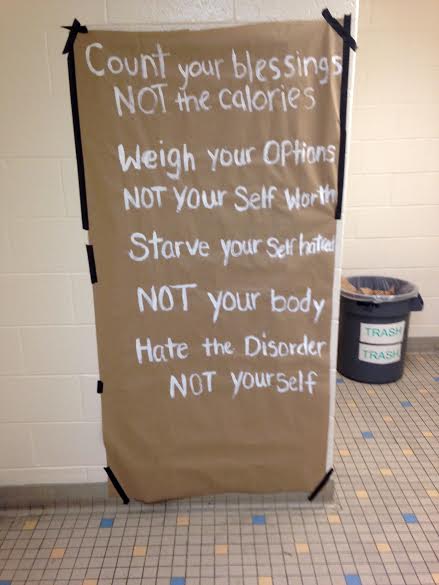 Count your blessings
NOT the calories
Weigh your Options
NOT your Self Worth
Starve your Self hatred
NOT your body
Hate the Disorder
NOT yourself
TRASH
TRASH